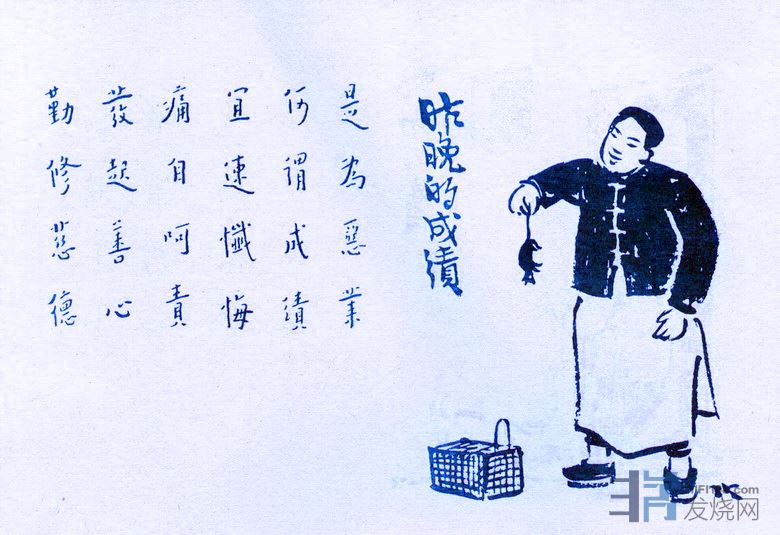 昨晚的成績
是為惡業
何謂成績
宜速懺悔
痛自呵責
發起善心
勤修慈德
TK
发烧网